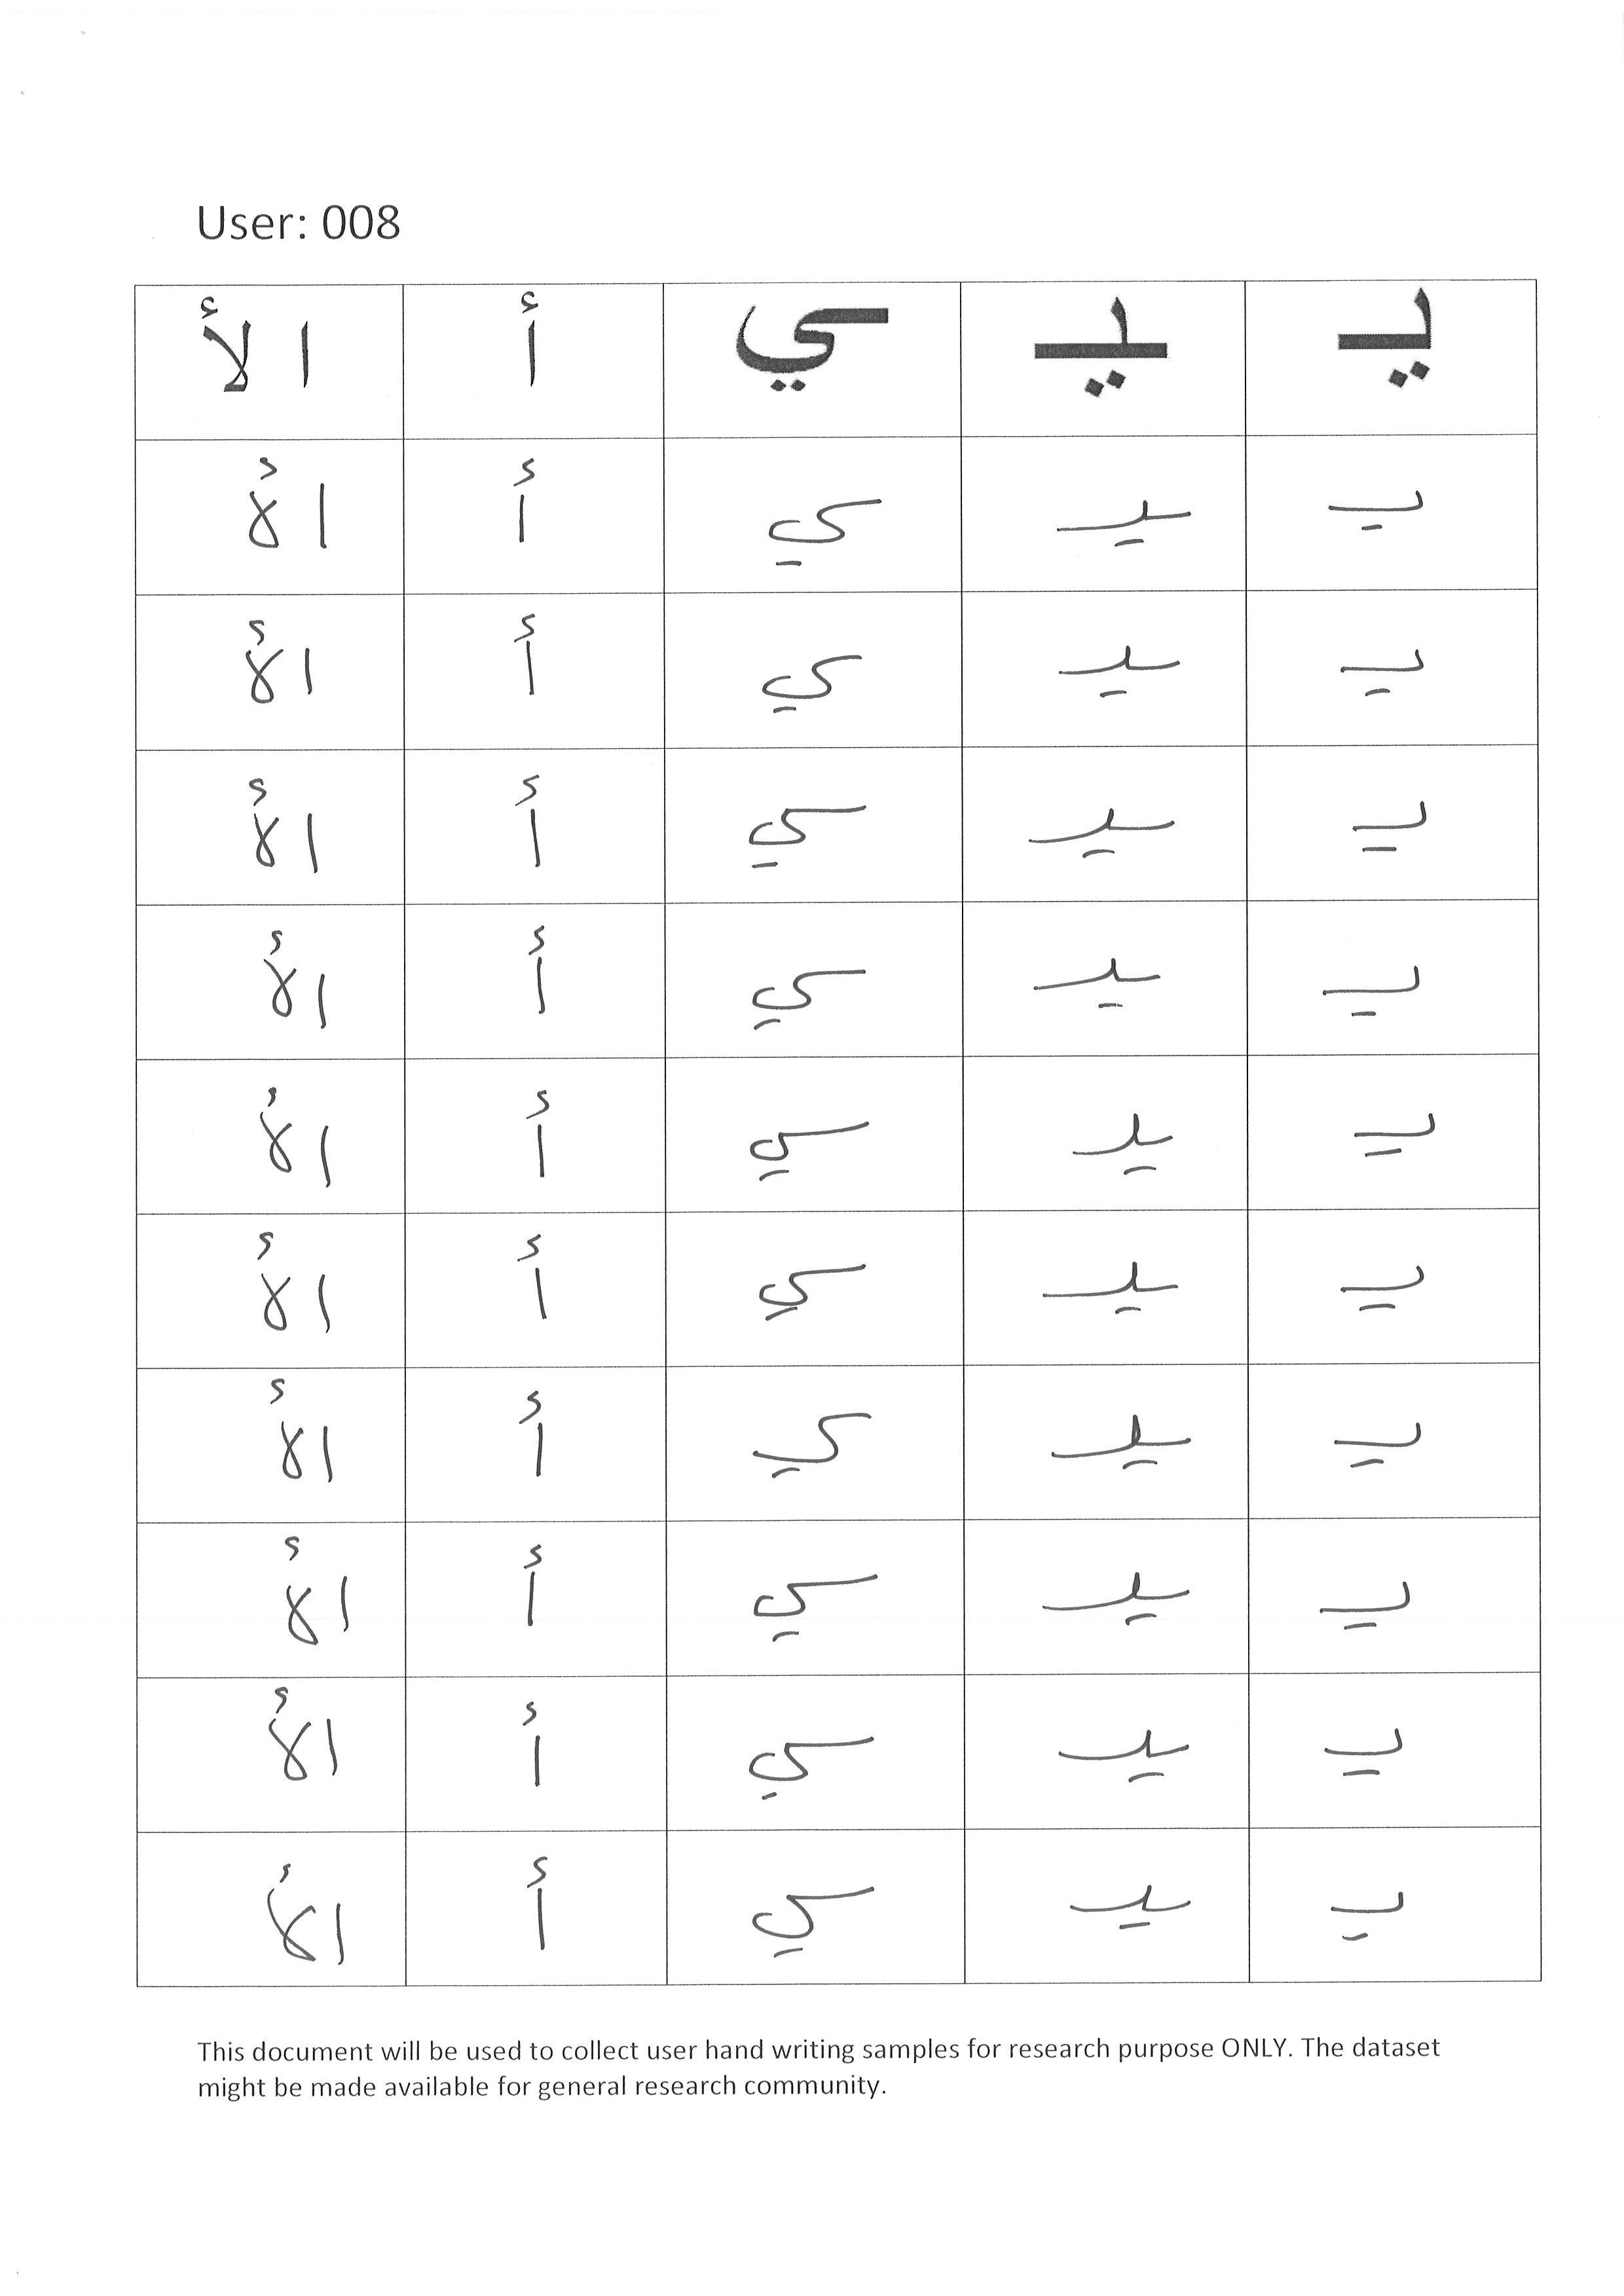 User: 008
يـ ـيـ ـي أ ا لأ
يـ ـيـ ـي أ ا لأ
يـ ـيـ ـي أ ا لأ
يـ ـيـ ـي أ ا لأ
يـ ـيـ ـي أ ا لأ
يـ ـيـ ـي أ ا لأ
يـ ـيـ ـي أ ا لأ
يـ ـيـ ـي أ ا لأ
يـ ـيـ ـي أ ا لأ
يـ ـيـ ـي أ ا لأ
يـ ـيـ ـي أ ا لأ
This document will be used to collect user hand writing samples for research purpose ONLY. The dataset
might be made available for general research community.